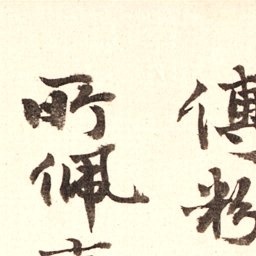 傅粉
所佩